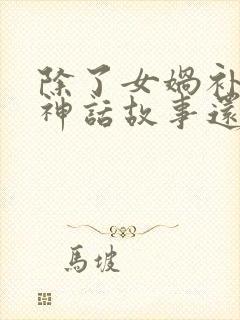 除了女媧補
神話故事還
馬坡